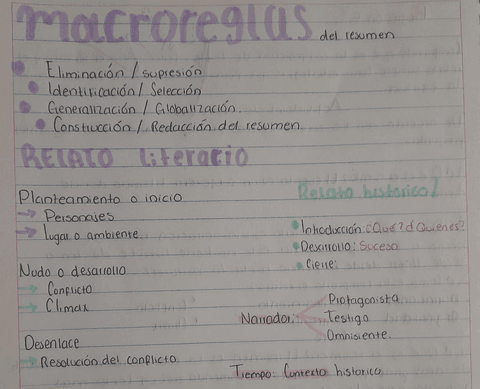 macroreglas del resumen
Eliminación / supresión
Identificación / Selección
Generalización / Globalización
Construcción / Redacción del resumen
RELATO literario
Planteamiento o inicio
→ Personajes
→ Lugar o ambiente
Nudo o desarrollo
→ Conflicto
→ Climax
Desenlace
→ Resolución del conflicto
Relato historico/
Introducción: ¿Qué? ¿Quienes?
Desarrollo: Suceso
Cierre:
Narrador:
Protagonista
Testigo
Omnisiente
Tiempo: Contexto historico